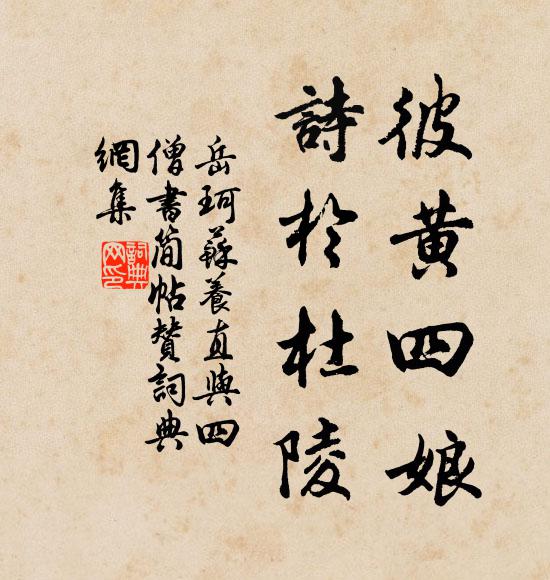 彼黄四娘
詩於杜陵
岳珂蘇養直與四
僧書簡帖贊詞典
網集
詞典
网印